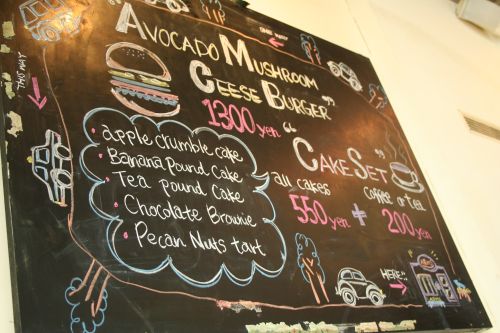 ONE WAY
THIS WAY
AVOCADO MUSHROOM
CEESE BURGER"
1300yen
"CAKE SET"
all cakes
coffee or tea
550yen + 200yen
· apple crumble cake
· Banana pound cake
· Tea pound cake
· Chocolate Brownie
· Pecan Nuts tart
HERE!